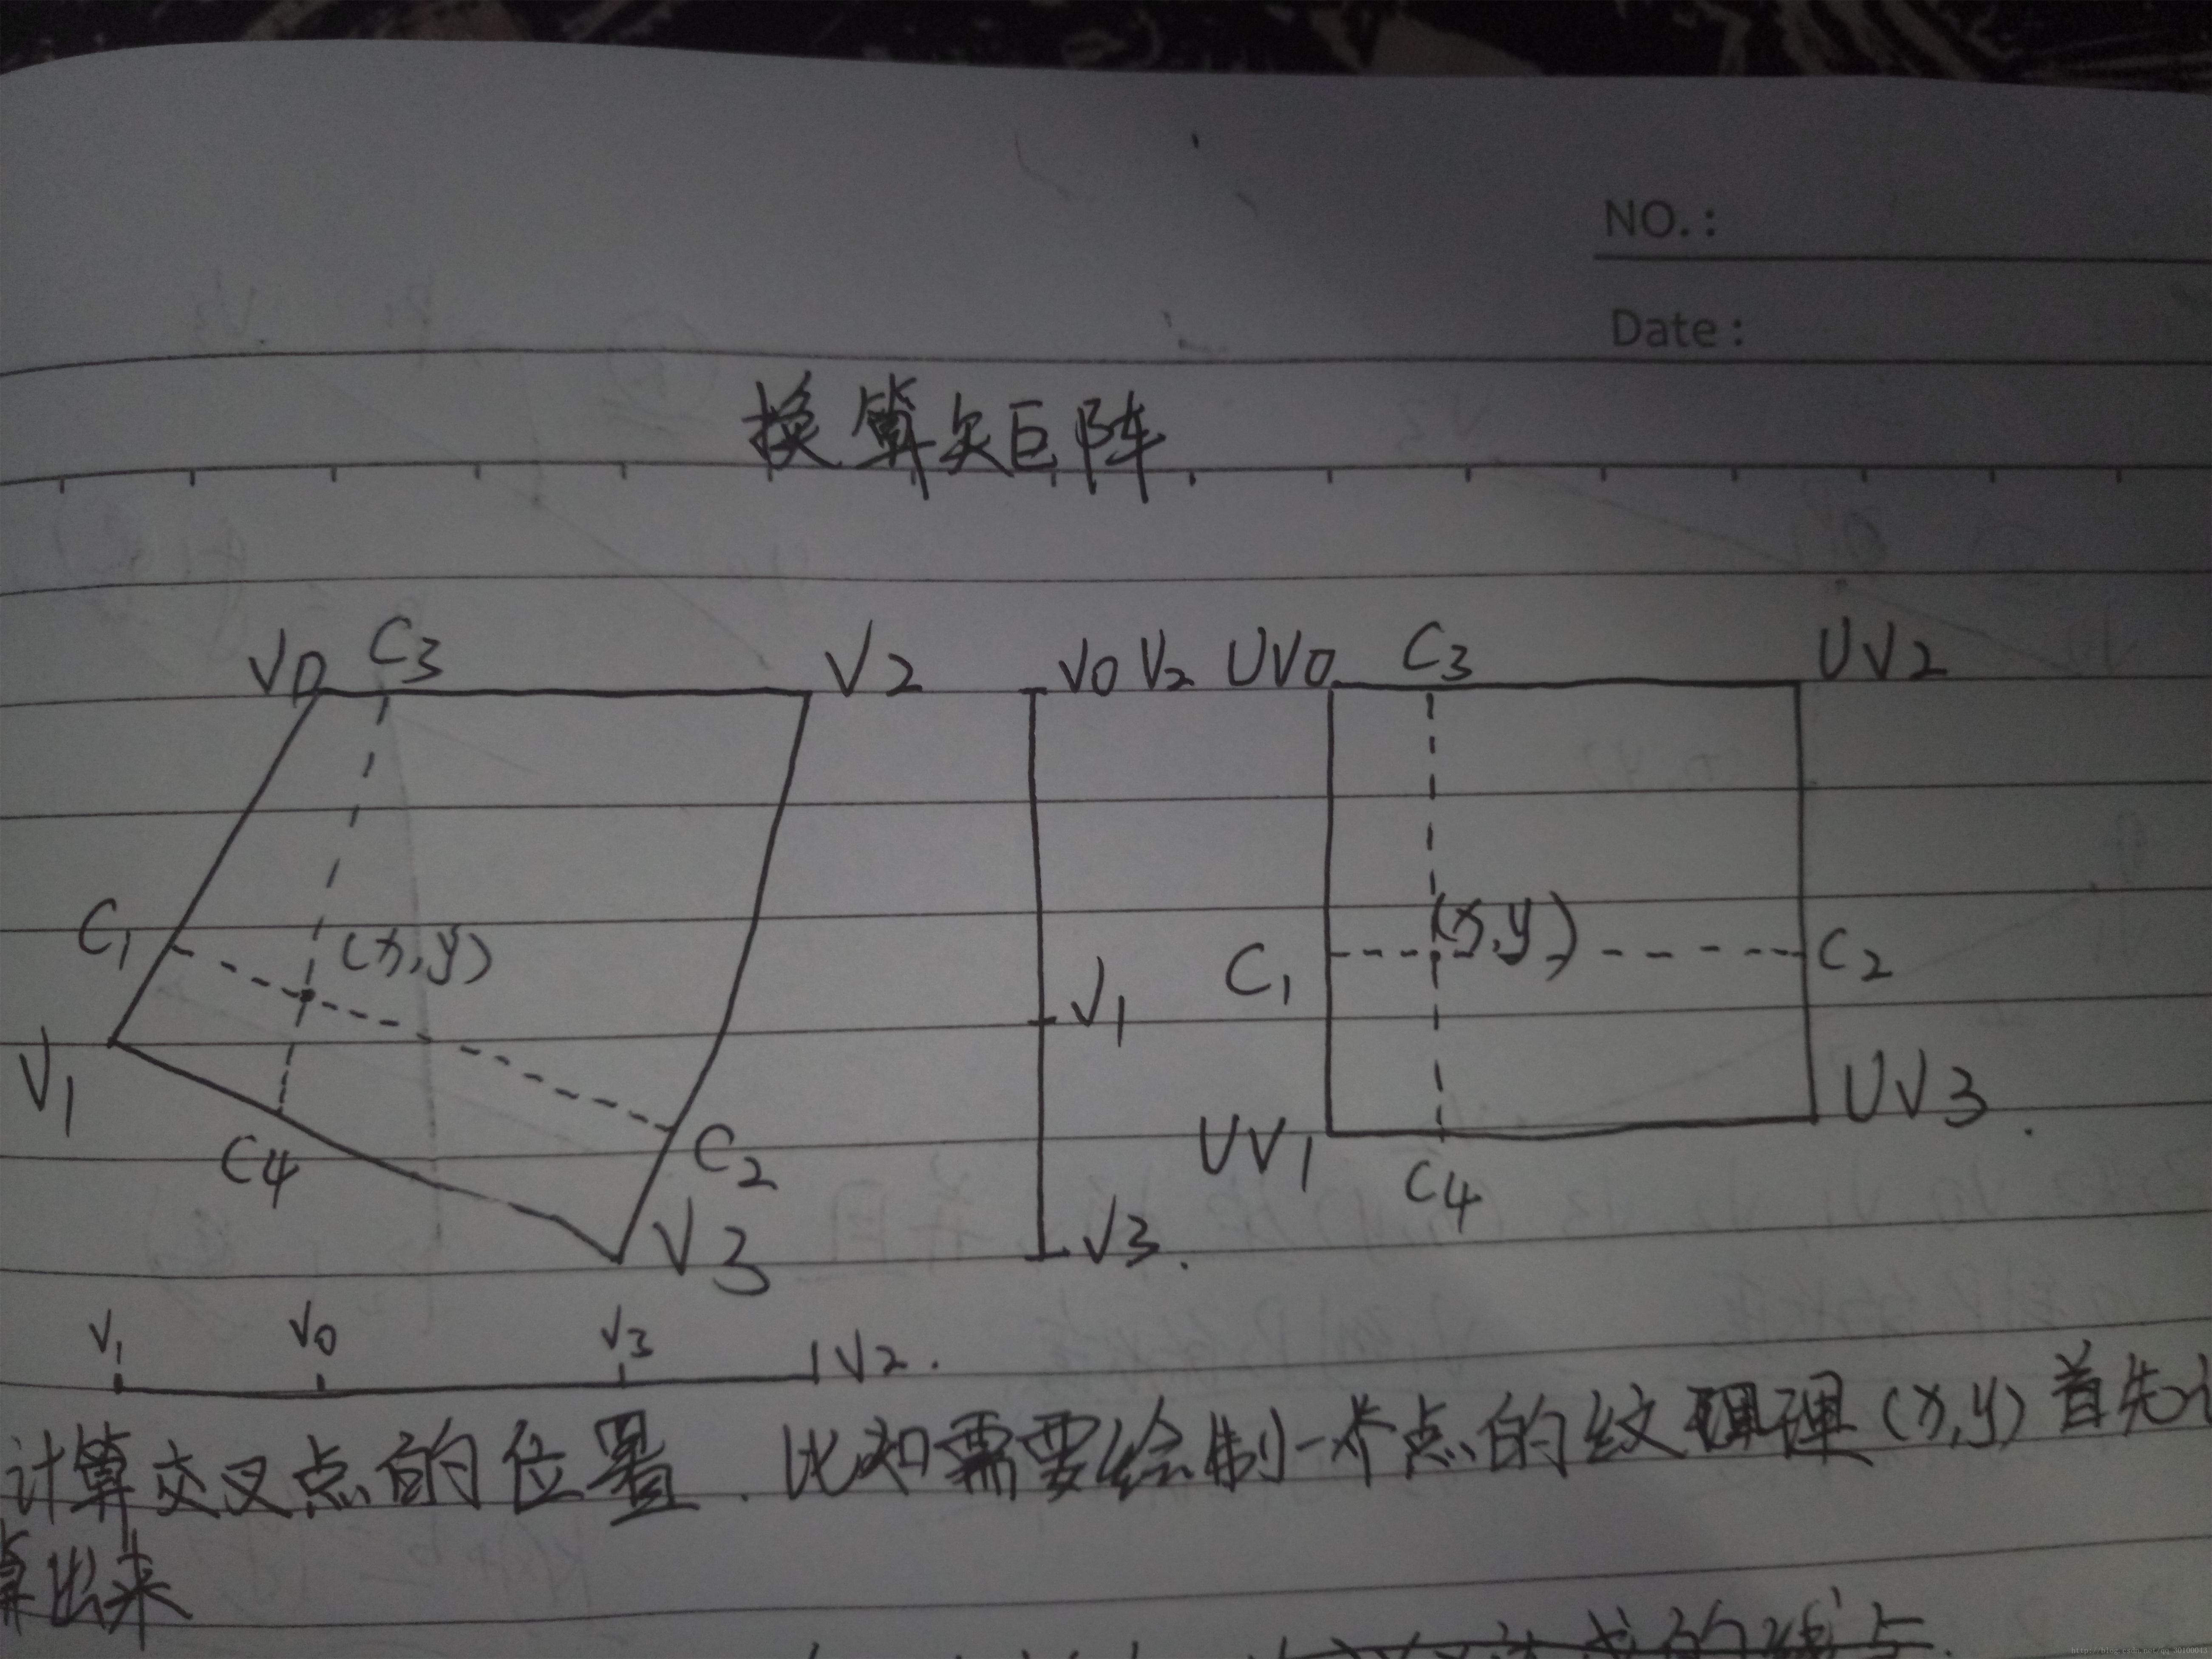 NO. :
Date :
换算矩阵
V0 C3 V2 V0 V2 UV0 C3 UV2
C1 (x,y) (x,y)
C1 C2
V1 V1
UV3
C4 C2 UV1 C4
V3 V3.
V1 V0 V3 V2.
计算交叉点的位置. 比如需要绘制一个点的纹理 (x,y) 首先
算出来